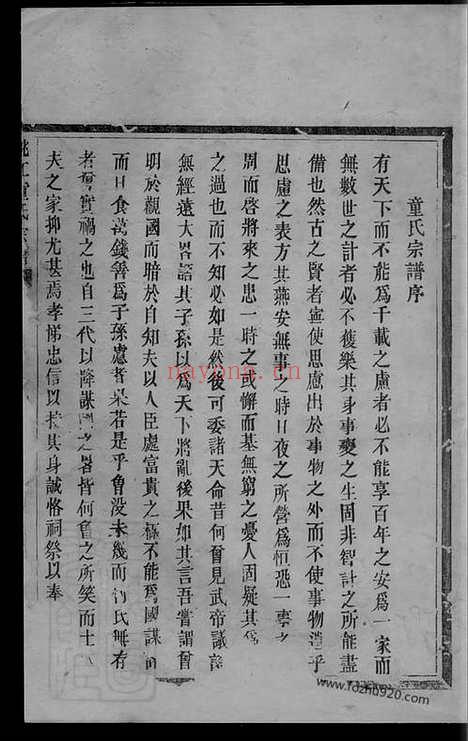 童氏宗譜序
有天下而不能爲千載之慮者必不能享百年之安爲一家而
無數世之計者必不獲樂其身事變之生固非智計之所能盡
備也然古之賢者寧使思慮出於事物之外而不使事物遺乎
思慮之表方其燕安無事之時日夜之所營爲恒恐一事之
周而啓將來之患一時之或懈而基無窮之憂人固疑其
之過也而不知必如是然後可委諸天命昔何曾見武帝議論
無經遠大畧語其子孫以爲天下將亂後果如其言吾嘗謂曾
明於觀國而暗於自知夫以人臣處富貴之極不能爲國謀
而日食萬錢善爲子孫慮者果若是乎曾沒未幾而何氏無有
者奢實禍之也自三代以降謀國之畧皆何曾之所笑而士
夫之家抑尤甚焉孝悌忠信以持其身誠恪祠祭以奉
姚江童氏宗譜
nayona.cn
www.fozhu920.com